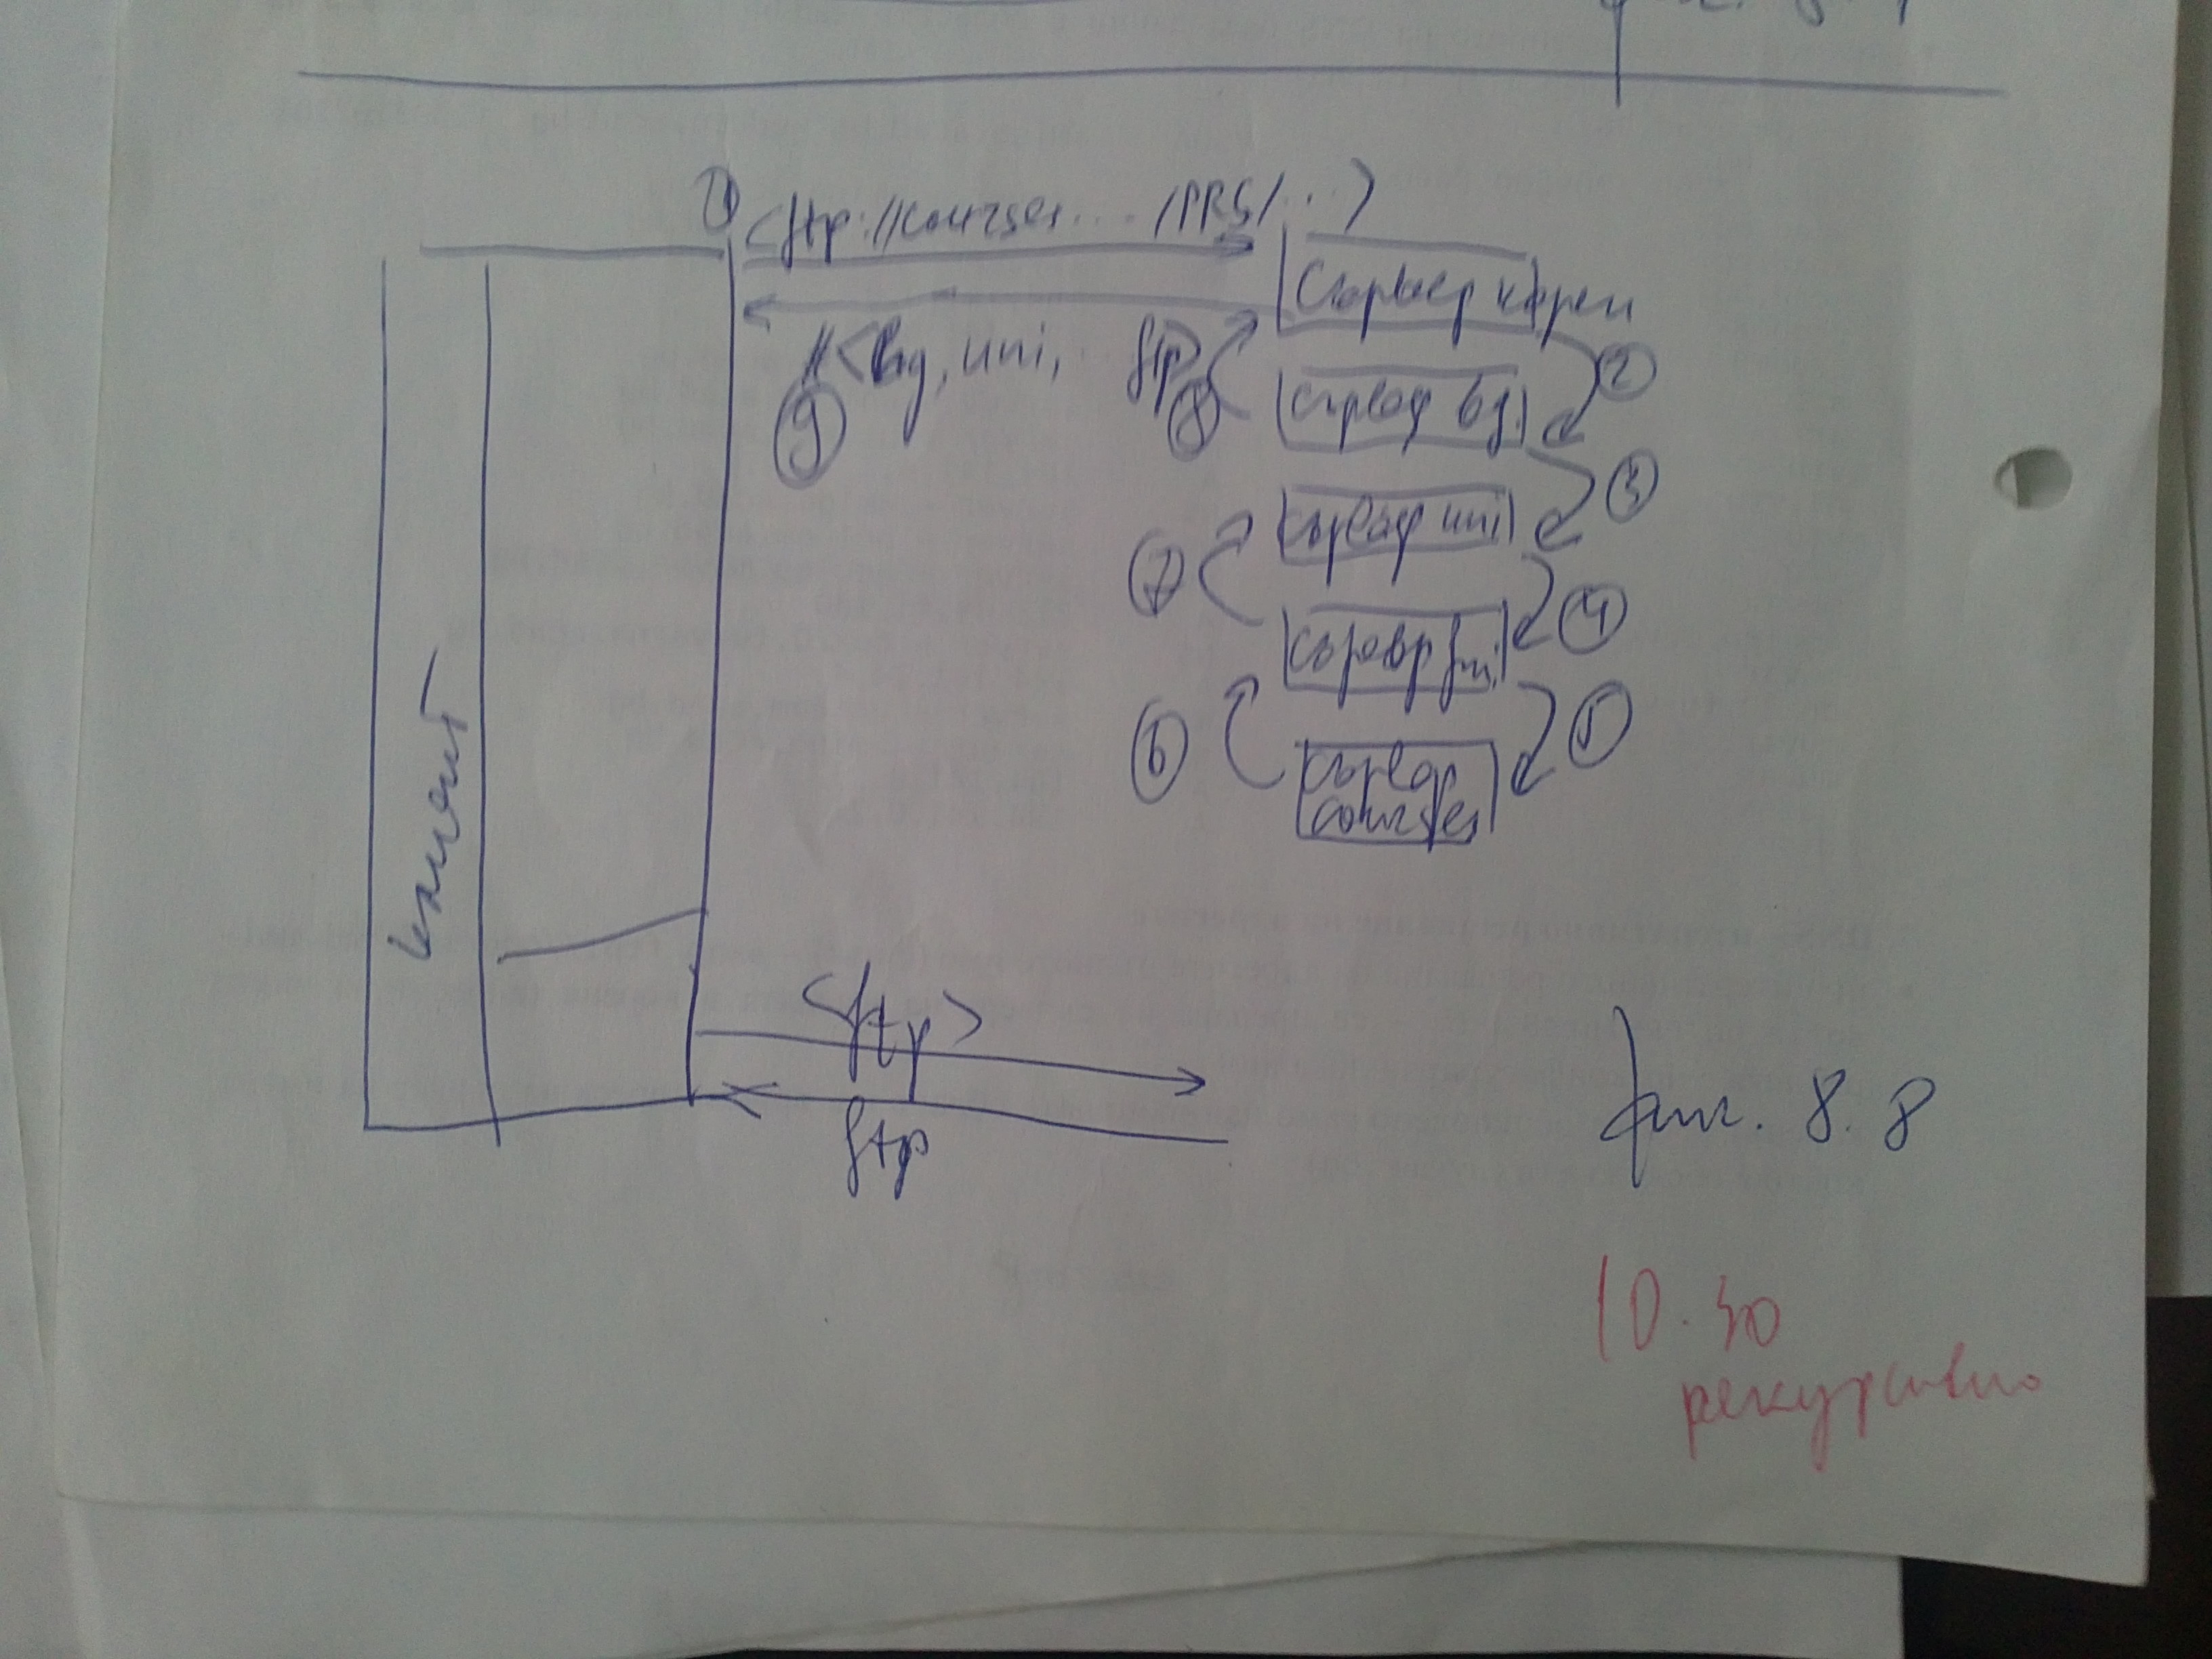 ①
<ftp://courses..../PRG/...>
Сървер корен
#<bg, uni, ftp>
②
⑨
⑧
сървър bg.
③
сървър uni
⑦
④
сървър fmi
⑥
⑤
сървър
courses
клиент
<ftp>
ftp
фиг. 8.8
10.30
рекурсивно